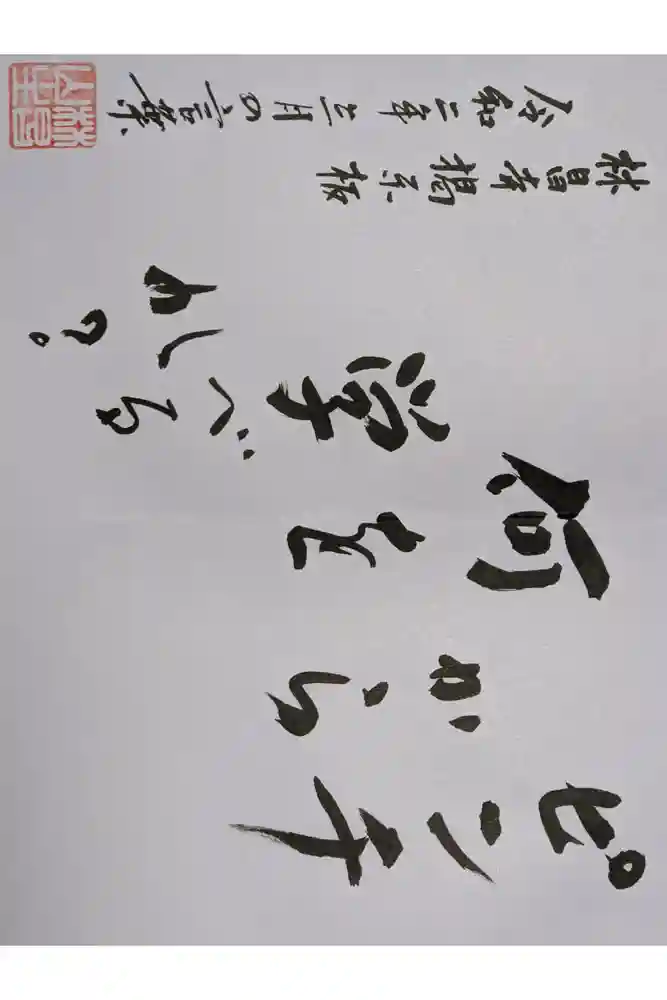 ピンチ
から
何を
学べる
か?
林昌寺掲示板
令和二年三月の言葉